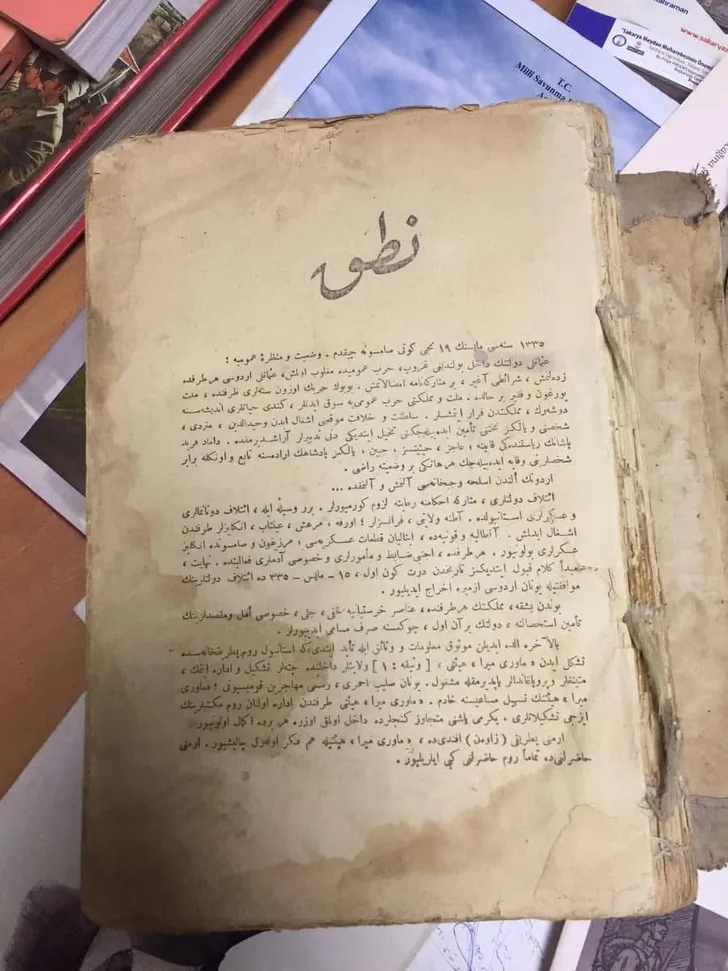 T.C.
Millî Savunma
www.sakarya
"Sakarya Meydan Muharebesinin
نطق
١٣٣٥ سنه‌سی مایسنك ١٩ نجی كونی صامسونه چیقدم . وضعیت و منظرۀ عمومیه :
عثمانلی دولتنك داخل بولندیغی غروپ، حرب عمومیده مغلوب اولمش، عثمانلی اردوسی هر طرفده
زده‌لنمش ، شرائطی آغیر ، بر متاركه‌نامه امضالانمش . بویوك حربك اوزون سنه‌لری ظرفنده ، ملت
یورغون و فقیر بر حالده . ملت و مملكتی حرب عمومی‌یه سوق ایدنلر ، كندی حیاتلری اندیشه‌سنه
دوشه‌رك ، مملكتدن فرار ایتمشلر . سلطنت و خلافت موقعنی اشغال ایدن وحیدالدین ، متردی ،
شخصنی و یالكز تختنی تأمین ایده‌بیله‌جكنی تخیل ایتدیكی دنی تدبیرلر آراشدیرمقده . داماد فرید
پاشانك ریاستنده‌كی قابینه ؛ عاجز ، حیثیتسز ، جبین ، یالكز پادشاهك اراده‌سنه تابع و اونكله برابر
شخصلرینی وقایه ایده‌بیله‌جك هر هانكی بر وضعیته راضی .
اردونك الندن اسلحه و جبخانه‌سی آلنمش و آلنمقده ...
ائتلاف دولتلری ، متاركه احكامنه رعایته لزوم كورمیورلر . برر وسیله ایله ، ائتلاف دونانمالری
و عسكرلری استانبولده . آطنه ولایتی ، فرانسزلر ؛ اورفه ، مرعش ، عینتاب ، انكلیزلر طرفندن
اشغال ایدلمش . آنطالیه و قونیه‌ده ، ایتالیان قطعات عسكریه‌سی ؛ مرزیفون و صامسونده انكلیز
عسكرلری بولونیور . هر طرفده ، اجنبی ضابط و مأمورلری و خصوصی آدملری فعالیتده . نهایت ،
مبدأ كلام قبول ایتدیكمز تاریخدن درت كون اول ، ١٥ - مایس - ٣٣٥ ده ائتلاف دولتلرینك
موافقتیله یونان اردوسی ازمیره اخراج ایدیلیور .
بوندن بشقه ، مملكتك هر طرفنده ، عناصر خرستیانیه خفی ، جلی ، خصوصی امل و مقصدلرینك
تأمین استحصالنه ، دولتك بر آن اول ، چوكمسنه صرف مساعی ایدییورلر .
بالآخره الده ایدیلن موثوق معلومات و وثائق ایله تأید ایتدی‌كه استانبول روم پطریقخانه‌سنده
تشكل ایدن « ماوری میرا » هیئتی ، [ وثیقه : ١ ] ولایتلر داخلنده چته‌لر تشكیل و اداره ایتمك ،
میتینغلر و پروپاغاندالر یاپدیرمقله مشغول . یونان صلیب احمری ، رسمی مهاجرین قومیسیونی ؛ « ماوری
میرا » هیئتنك تسهیل مساعیسنه خادم . « ماوری میرا » هیئتی طرفندن اداره اولنان روم مكتبلرینك
ایزجی تشكیلاتلری ، یكرمی یاشنی متجاوز كنجلرده داخل اولمق اوزره هر یرده اكمال اولونیور .
ارمنی پطریقی ( زاوه‌ن ) افندی‌ده ، « ماوری میرا » هیئتیله هم فكر اوله‌رق چالیشیور . ارمنی
حاضرلغی‌ده تماماً روم حاضرلغی كبی ایلریلیور .